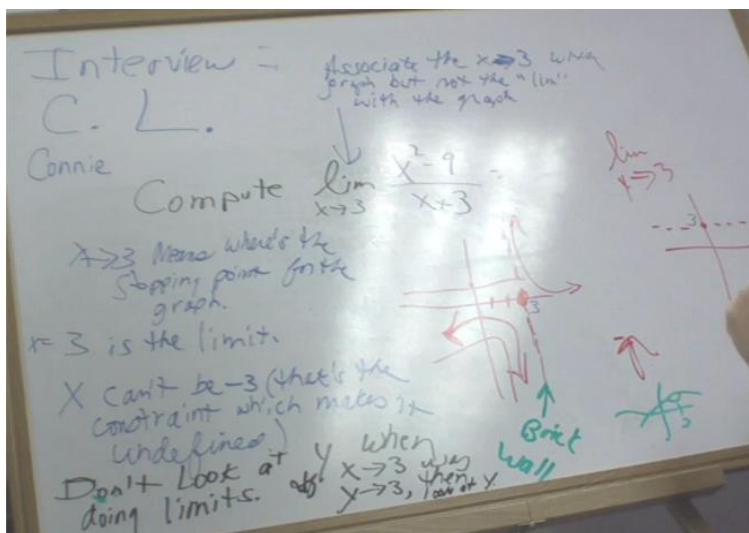 Interview =
C. L.
Connie
Associate the x→3 when
graph but not the "lim"
with the graph
Compute lim x²-9
x→3 x+3 =
x→3 Means where's the
stopping point for the
graph.
x= 3 is the limit.
X can't be -3 (that's the
constraint which makes it
undefined)
Don't Look at y when
doing limits. x→3
y→3, then
at y.
3
Brick
Wall
lim
x→3
3